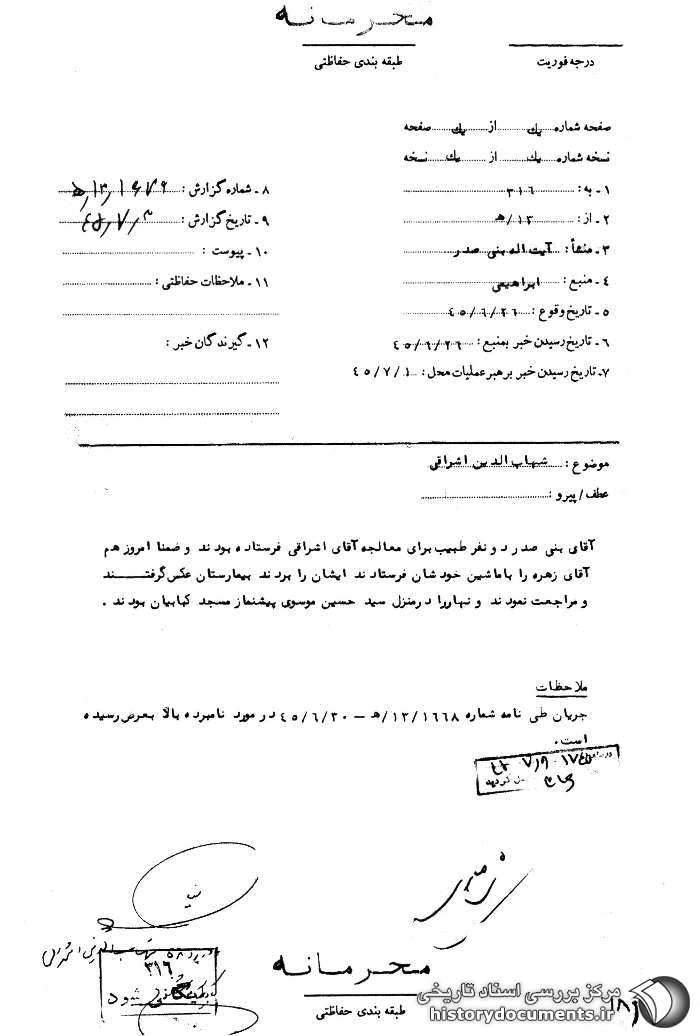 محرمانه
طبقه بندی حفاظتی
درجه فوریت
صفحه شماره یك از یك صفحه
نسخه شماره یك از یك نسخه
۱ - به : ۳۱۶
۲ - از : ۱۳/ه
۳ - منشأ : آیت اله بنی صدر
۴ - منبع : ابراهیمی
۵ - تاریخ وقوع : ۴۵/۶/۲۶
۶ - تاریخ رسیدن خبر بمنبع : ۴۵/۶/۲۶
۷ - تاریخ رسیدن خبر برهبر عملیات محل : ۴۵/۷/۱
۸ - شماره گزارش :
۹ - تاریخ گزارش : ۴۵/۷/۳
۱۰ - پیوست :
۱۱ - ملاحظات حفاظتی :
۱۲ - گیرندگان خبر :
موضوع : شهاب الدین اشراقی
عطف / پیرو :
آقای بنی صدر دو نفر طبیب برای معالجه آقای اشراقی فرستاده بودند و ضمنا امروز هم
آقای زهره را با ماشین خودشان فرستادند ایشان را بردند بیمارستان عکس گرفتنـــــد
و مراجعت نمودند و نهار را در منزل سید حسین موسوی پیشنماز مسجد کبابیان بودند .
ملاحظات
جریان طی نامه شماره ۱۳/۱۶۶۸/ه - ۴۵/۶/۳۰ در مورد نامبرده بالا بعرض رسیده
است.
۳۱۶
بایگانی شود
محرمانه
طبقه بندی حفاظتی
مرکز بررسی اسناد تاریخی
historydocuments.ir